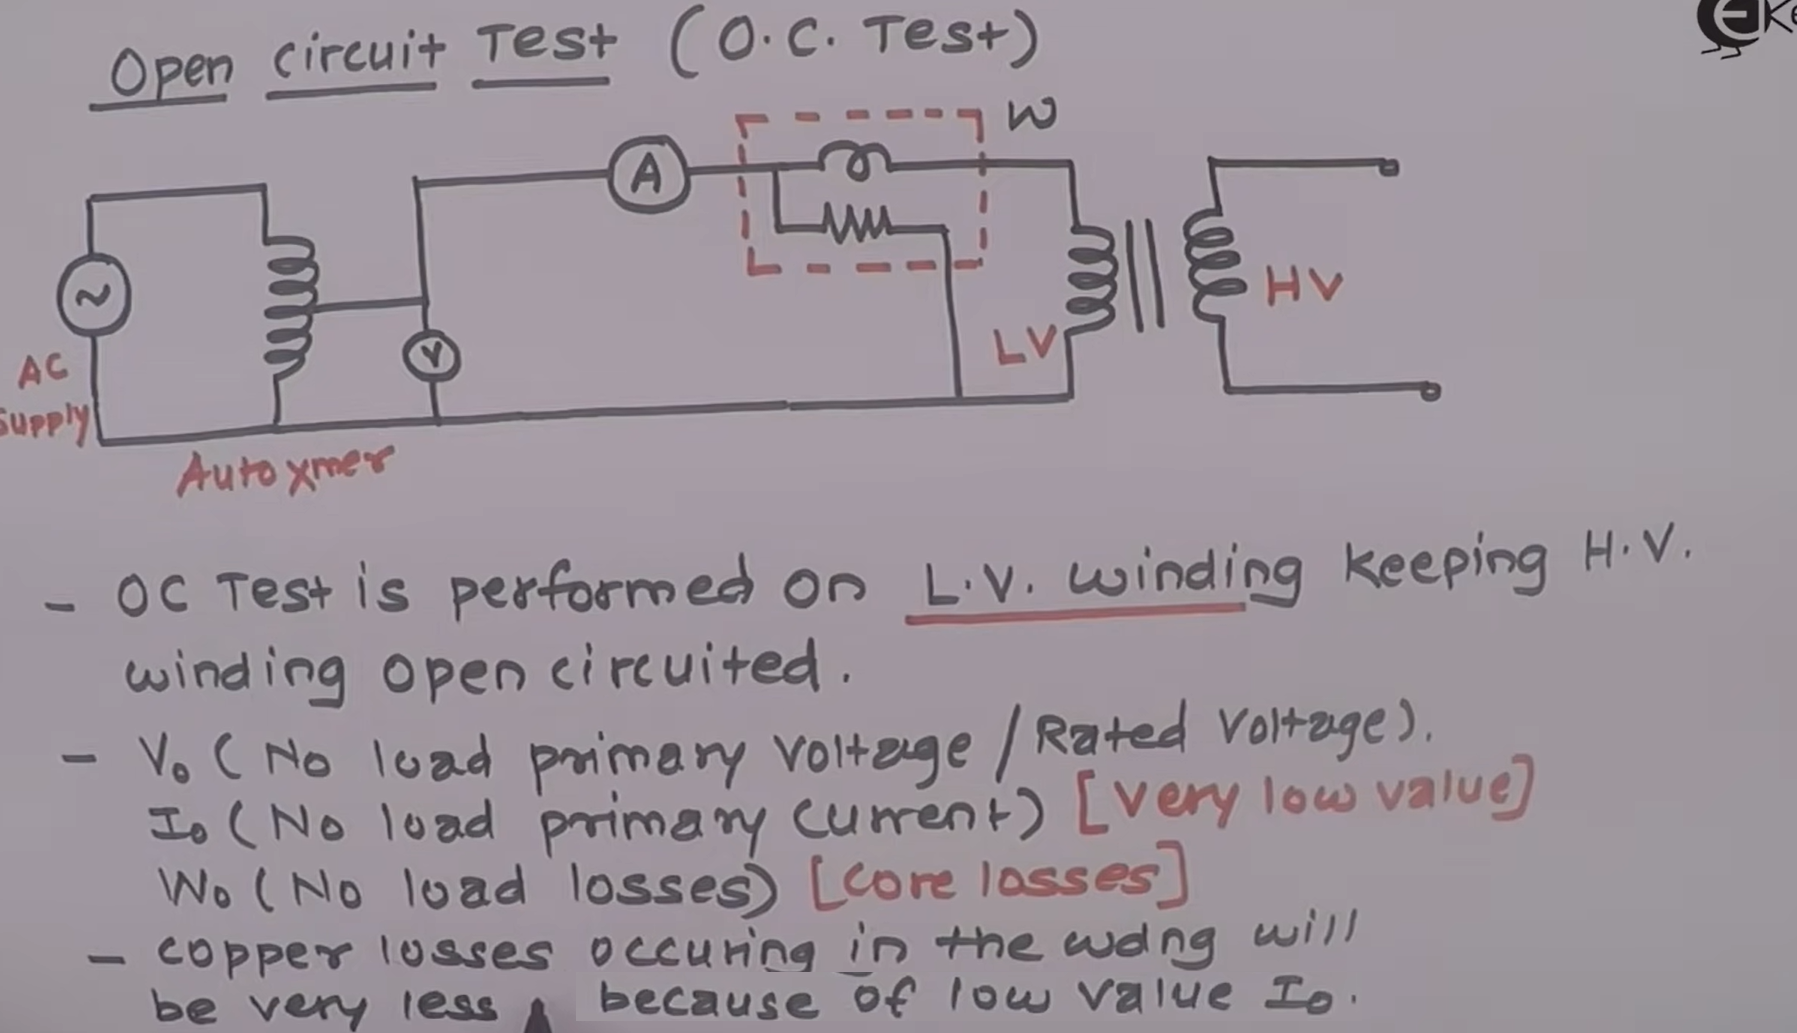 Open circuit Test (O.C. Test)
W
A
~
V
LV
HV
AC
Supply
Auto xmer
- OC Test is performed on L.V. winding keeping H.V.
winding open circuited.
- Vo (No load primary voltage / Rated voltage).
Io (No load primary current) [very low value]
Wo (No load losses) [core losses]
- copper losses occuring in the wdng will
be very less because of low value Io.